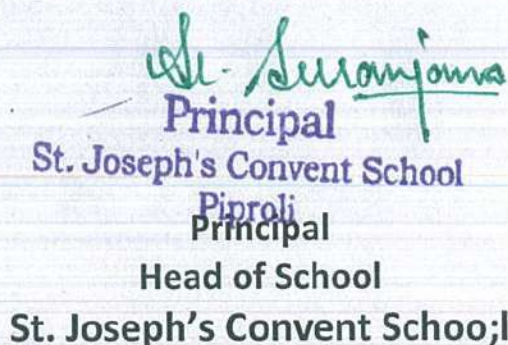 Sr. Suranjana
Principal
St. Joseph's Convent School
Piproli
Principal
Head of School
St. Joseph’s Convent Schoo;l